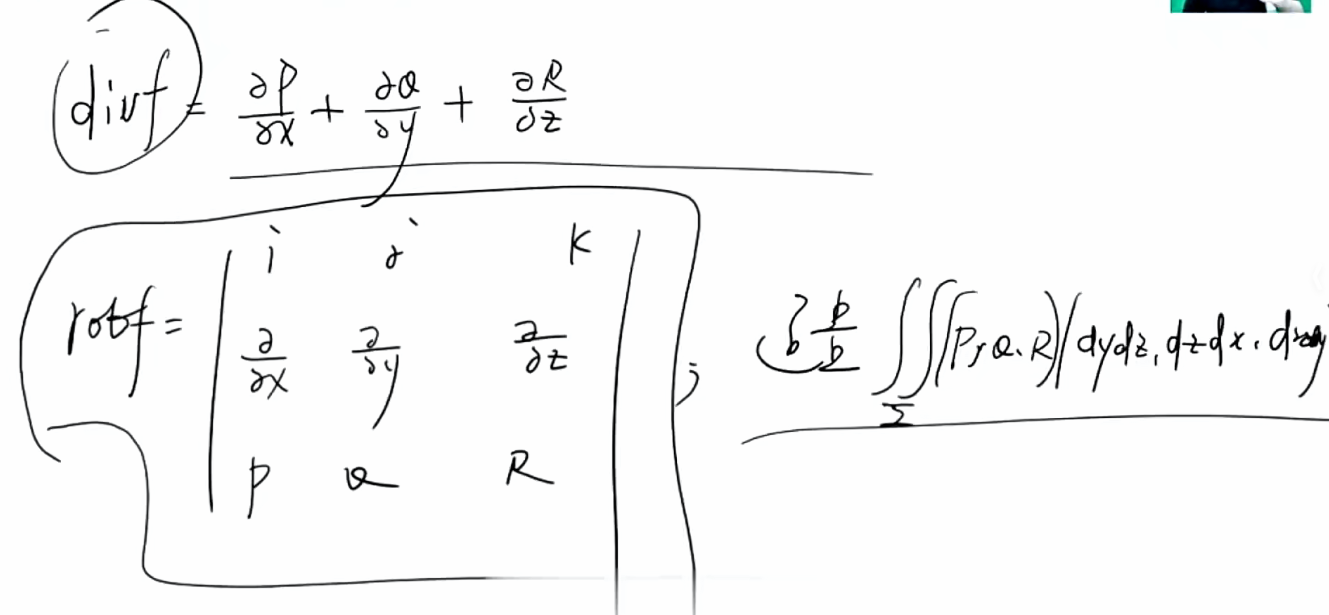 divf = ∂P/∂x + ∂Q/∂y + ∂R/∂z
rotf = | i j k |
| ∂/∂x ∂/∂y ∂/∂z | ;
| P Q R |
∬_Σ (P, Q, R) (dydz, dzdx, dxdy